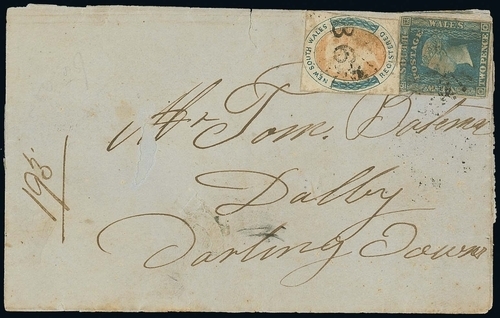 NEW SOUTH WALES
REGISTERED
WALES
POSTAGE
TWO PENCE
Mr Tom.
Dalby
Darling Downs
193.